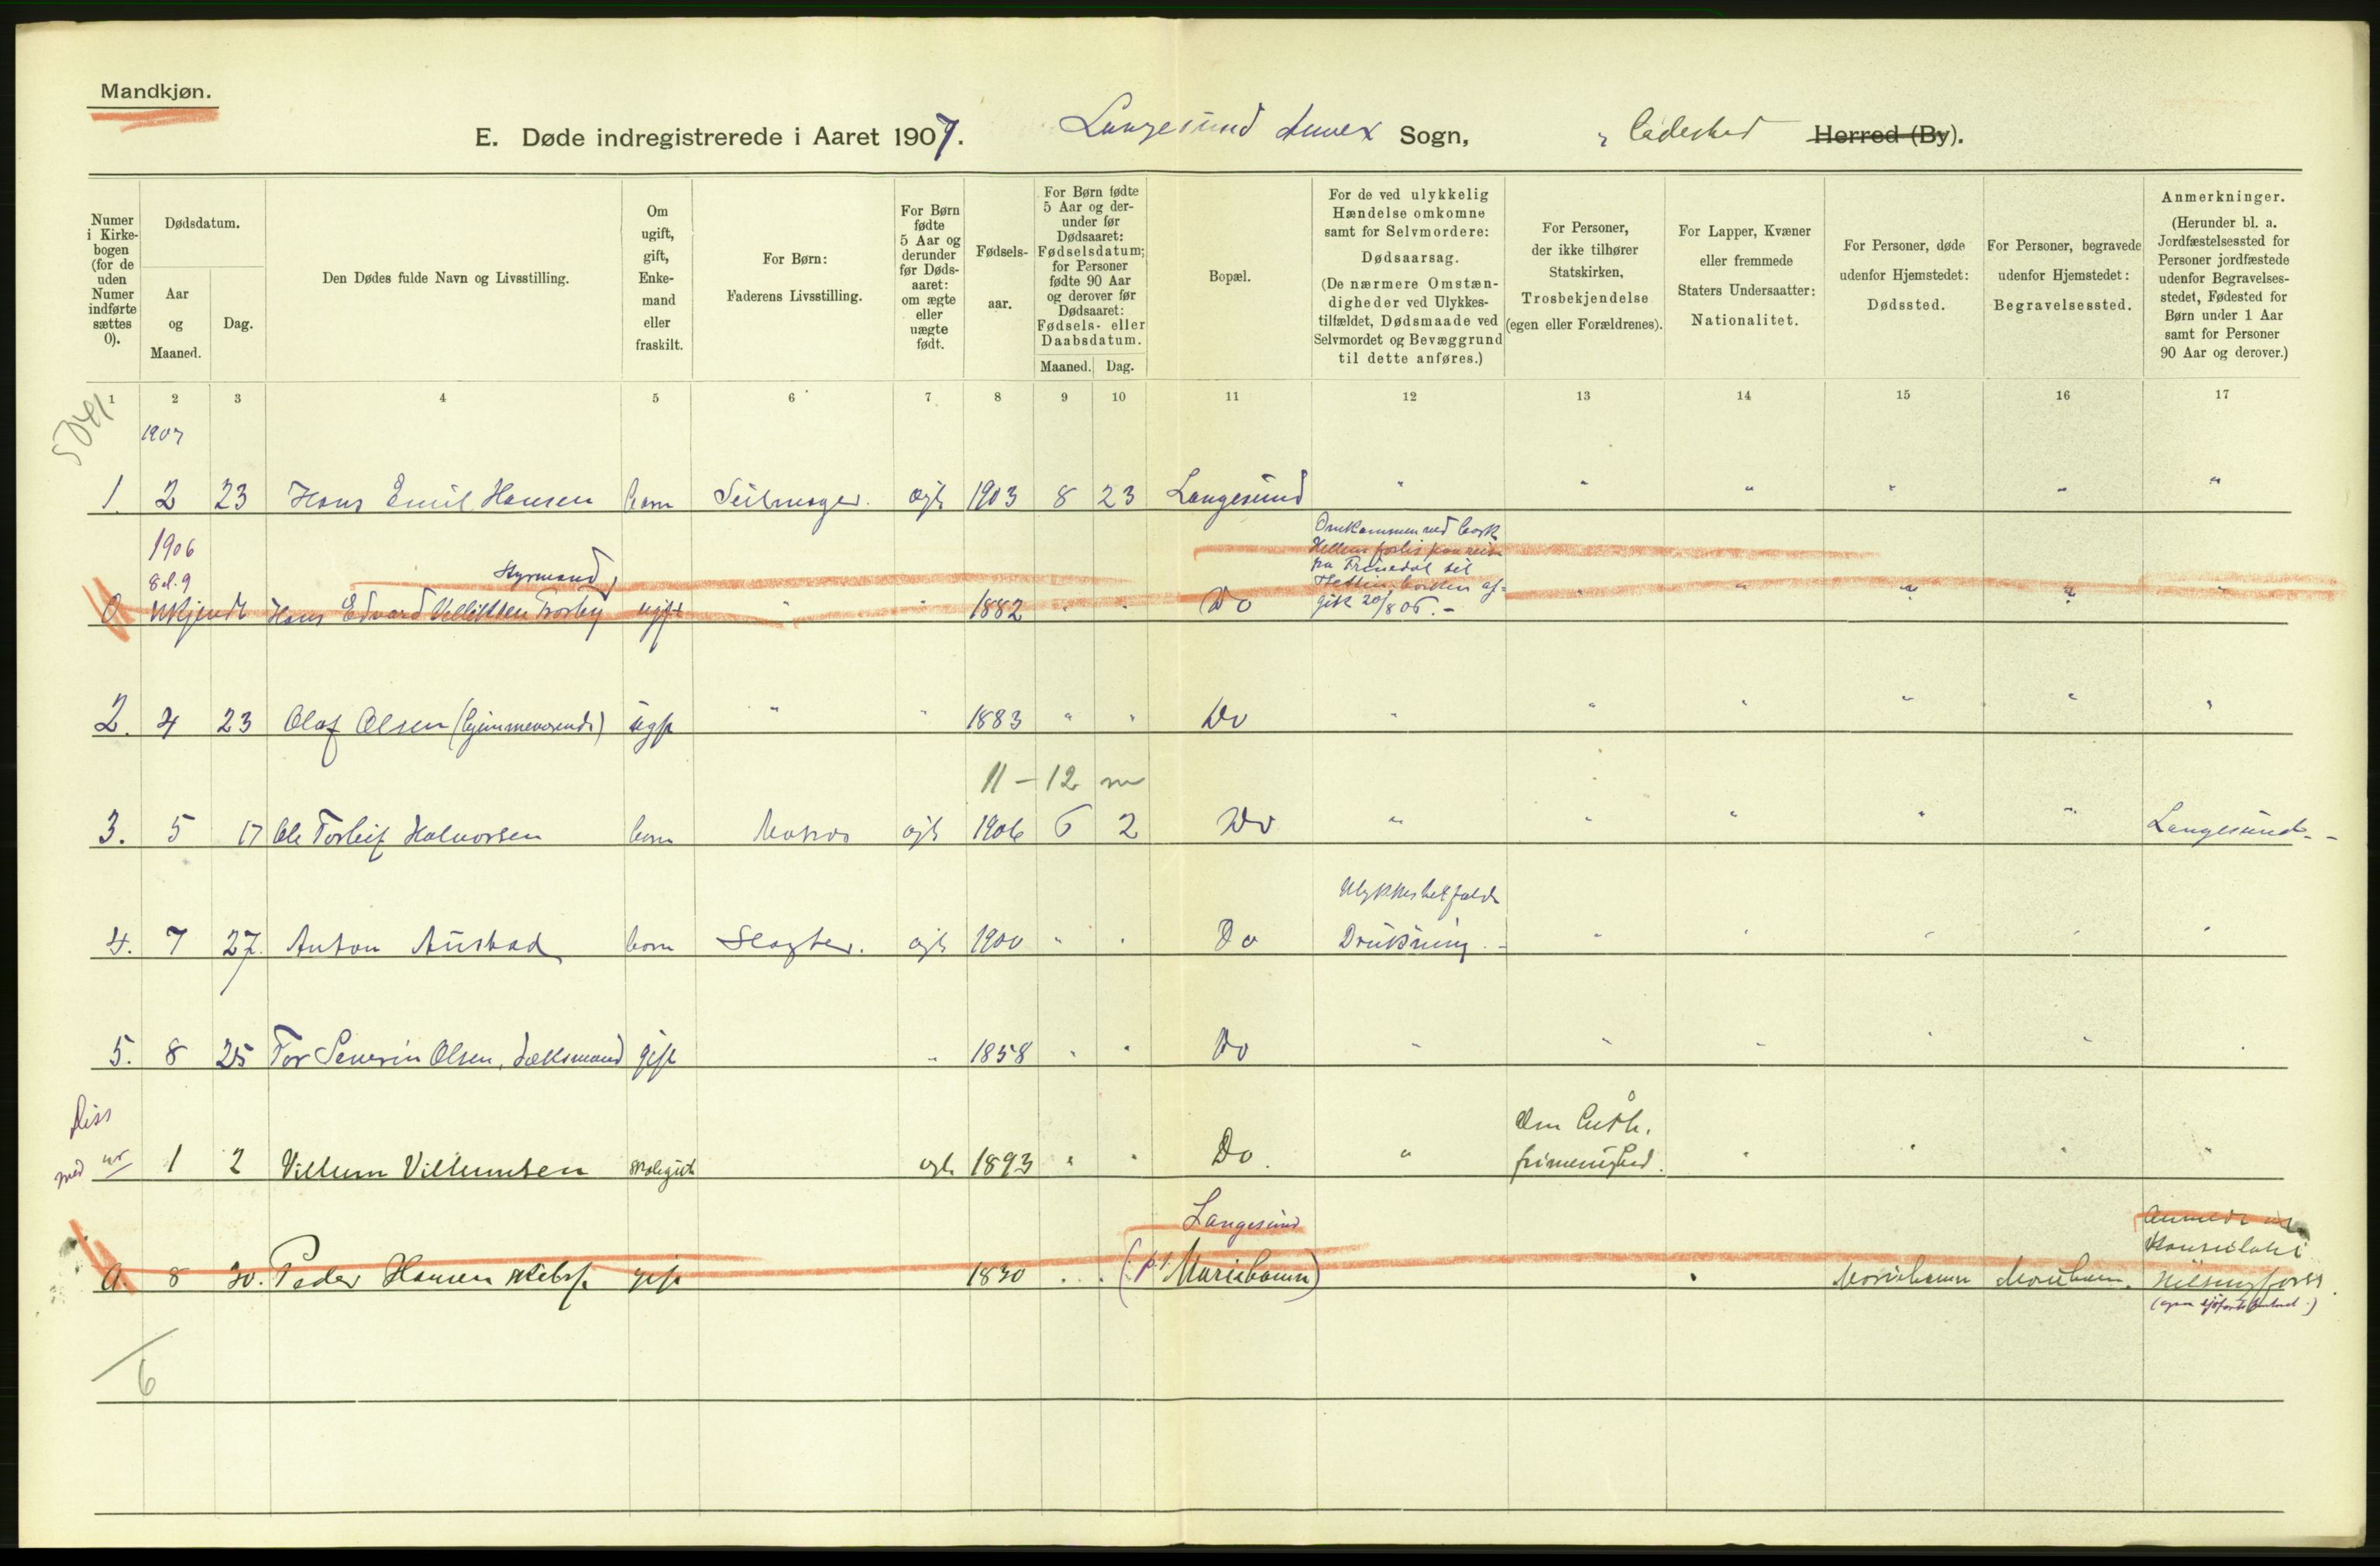 Mandkjøn.
E. Døde indregistrerede i Aaret 1907. Langesund Annex Sogn, Ladested Herred (By).
Numer i Kirkebogen (for de uden Numer indførte sættes 0).
Dødsdatum.
Aar og Maaned.
Dag.
Den Dødes fulde Navn og Livsstilling.
Om ugift, gift, Enkemand eller fraskilt.
For Børn:
Faderens Livsstilling.
For Børn fødte 5 Aar og derunder før Dødsaaret: om ægte eller uægte født.
Fødselsaar.
For Børn fødte 5 Aar og derunder før Dødsaaret: Fødselsdatum; for Personer fødte 90 Aar og derover før Dødsaaret: Fødsels- eller Daabsdatum.
Maaned. Dag.
Bopæl.
For de ved ulykkelig Hændelse omkomne samt for Selvmordere:
Dødsaarsag.
(De nærmere Omstændigheder ved Ulykkestilfældet, Dødsmaade ved Selvmordet og Bevæggrund til dette anføres.)
For Personer, der ikke tilhører Statskirken,
Trosbekjendelse
(egen eller Forældrenes).
For Lapper, Kvæner eller fremmede Staters Undersaatter:
Nationalitet.
For Personer, døde udenfor Hjemstedet:
Dødssted.
For Personer, begravede udenfor Hjemstedet:
Begravelsessted.
Anmerkninger.
(Herunder bl. a. Jordfæstelsessted for Personer jordfæstede udenfor Begravelsesstedet, Fødested for Børn under 1 Aar samt for Personer 90 Aar og derover.)
1 2 3 4 5 6 7 8 9 10 11 12 13 14 15 16 17
1907
1. 2 23 Hans Emil Hansen barn Seilmager. ægte 1903 8 23 Langesund " " " " " "
1906
8 el. 9
Styrmand
0 ukjendt Hans Edvard Trosby ugift " " 1882 " " Do
gik 20/8 06. -
2. 4 23 Olaf Olsen (hjemmeværende) ugift " " 1883 " " Do " " " " " "
11 - 12 m
3. 5 17 Ole Torleif Halvorsen barn Matros ægte 1906 6 2 Do " " " " " Langesund.
Ulykkestilfælde
4. 7 27. Anton Austad barn Slagter. ægte 1900 " " Do Drukning.
5. 8 25 Tor Severin Olsen, gift " 1858 " " Do
Diss
med nr 1 2 Villum Villumsen ægte 1893 " " Do. " Den luth. frimenighed.
Langesund
0. 8 30. Peder Hansen gift 1830 (p.t. Mariehamn) Mariehamn Mariehamn.
Anmeldt
Helsingfors
6